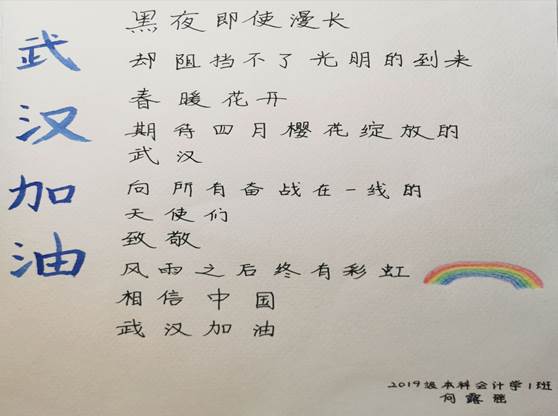 武汉加油
黑夜即使漫长
却阻挡不了光明的到来
春暖花开
期待四月樱花绽放的
武汉
向所有奋战在一线的
天使们
致敬
风雨之后终有彩虹
相信中国
武汉加油
2019级本科会计学1班
何露